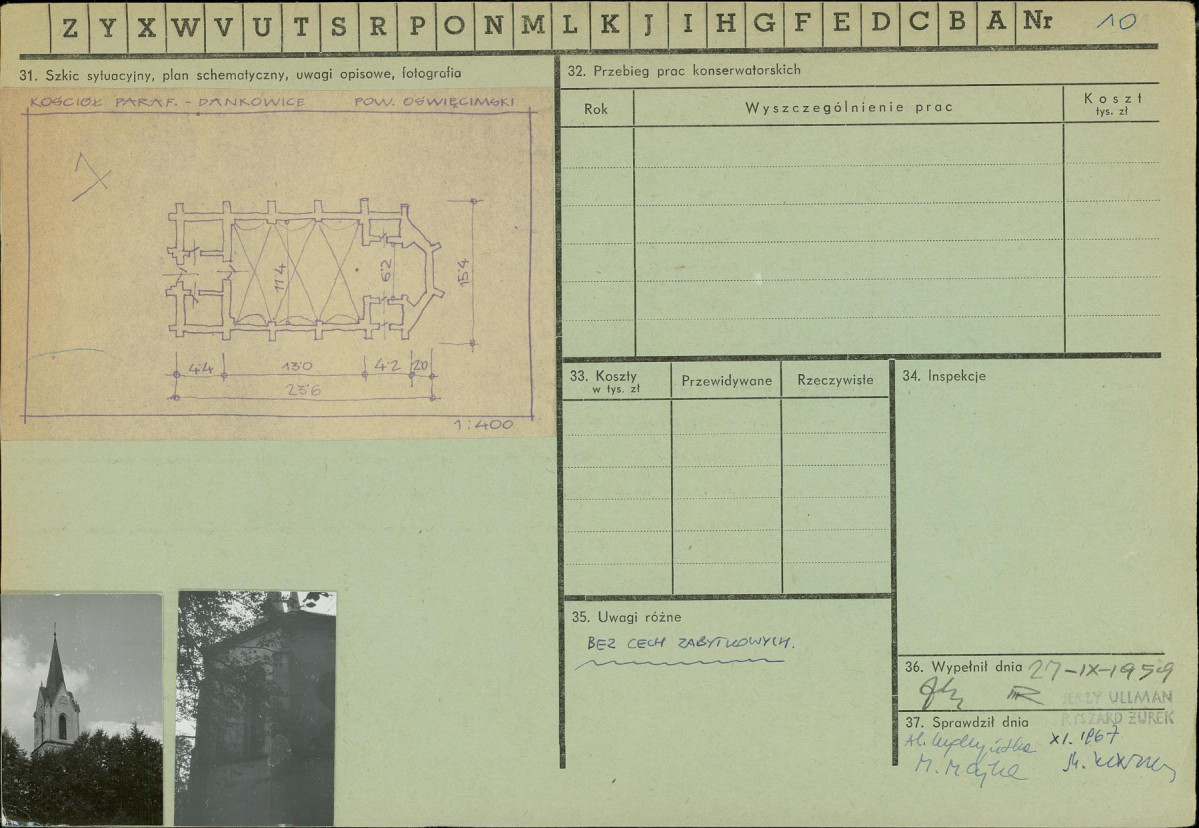 Z Y X W V U T S R P O N M L K J I H G F E D C B A Nr 10
31. Szkic sytuacyjny, plan schematyczny, uwagi opisowe, fotografia
KOŚCIÓŁ PARAF. - DANKOWICE POW. OŚWIĘCIMSKI
11'4
6'2
15'4
4'4 13'0 4'2 20
23'6
1:400
32. Przebieg prac konserwatorskich
Rok Wyszczególnienie prac Koszt
tys. zł
33. Koszty
w tys. zł
Przewidywane Rzeczywiste
34. Inspekcje
35. Uwagi różne
BEZ CECH ZABYTKOWYCH.
36. Wypełnił dnia 27-IX-1959
JERZY ULLMAN
RYSZARD ŻUREK
37. Sprawdził dnia
XI. 1967